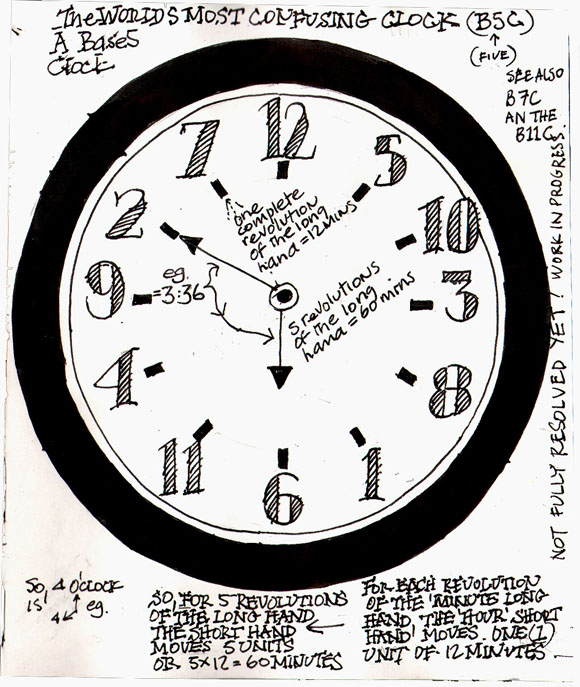 The WORLD'S MOST CONFUSING CLOCK (B5C)
A Base5
Clock
(FIVE)
SEE ALSO
B7C
AN THE
B11Cs.
12
5
10
3
8
1
6
11
4
9
2
7
one
complete
revolution
of the long
hand = 12 mins
eg.
=3:36
5 revolutions
of the long
hand = 60 mins
NOT FULLY RESOLVED YET! WORK IN PROGRESS
So, 4 O'CLOCK
is eg.
4
SO, FOR 5 REVOLUTIONS
OF THE LONG HAND
THE SHORT HAND
MOVES 5 UNITS
OR 5x12=60 MINUTES
FOR EACH REVOLUTION
OF THE 'MINUTE' LONG
HAND, THE 'HOUR' 'SHORT
HAND' MOVES ONE (1)
UNIT OF 12 MINUTES